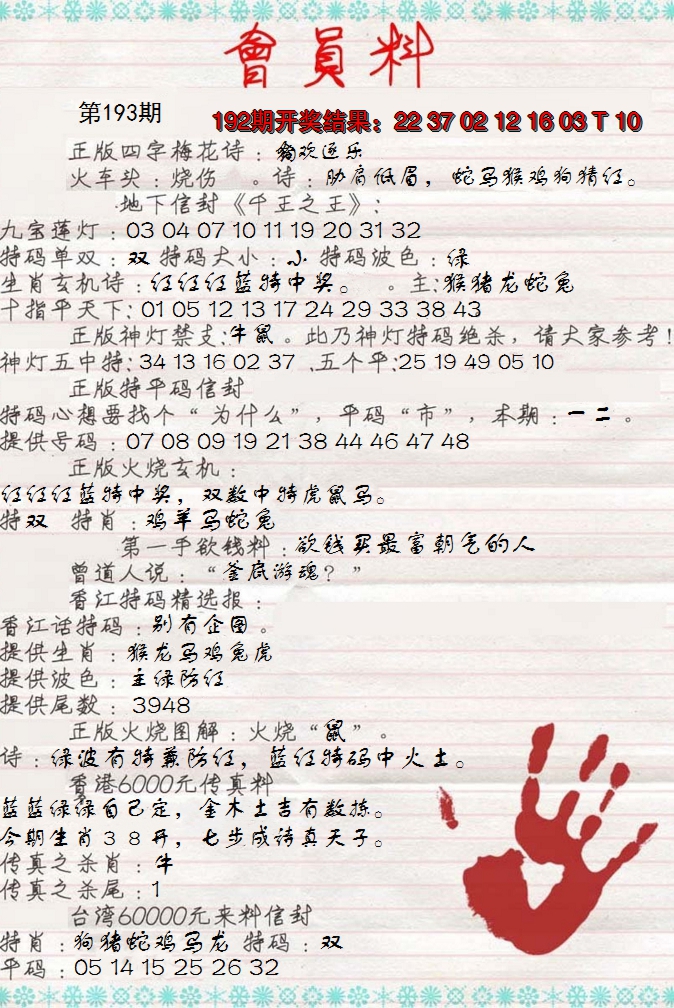 會員料
第193期
192期开奖结果：22 37 02 12 16 03 T 10
正版四字梅花诗：豬欢逐乐
火车头：烧伤 。诗：胁肩低眉，蛇马猴鸡狗猜红。
地下信封《千王之王》：
九宝莲灯：03 04 07 10 11 19 20 31 32
特码单双：双 特码大小：小 特码波色：绿
生肖玄机诗：红红红蓝特中奖。 。主:猴猪龙蛇兔
十指平天下: 01 05 12 13 17 24 29 33 38 43
正版神灯禁支:牛鼠。此乃神灯特码绝杀，请大家参考！
神灯五中特:34 13 16 02 37 .五个平:25 19 49 05 10
正版特平码信封
特码心想要找个“为什么”，平码“市”，本期：一二。
提供号码：07 08 09 19 21 38 44 46 47 48
正版火烧玄机：
红红红蓝特中奖，双数中特虎鼠马。
特双 特肖：鸡羊马蛇兔
第一手欲钱料：欲钱买最富朝气的人
曾道人说：“釜底游魂？”
香江特码精选报：
香江话特码：别有企图。
提供生肖：猴龙马鸡兔虎
提供波色：主绿防红
提供尾数：3948
正版火烧图解：火烧“鼠”。
诗：绿波有特兼防红，蓝红特码中火土。
香港6000元传真料
蓝蓝绿绿自己定，金木土吉有数拣。
今期生肖38开，七步成诗真天子。
传真之杀肖：牛
传真之杀尾：1
台湾60000元来料信封
特肖：狗猪蛇鸡马龙 特码：双
平码：05 14 15 25 26 32